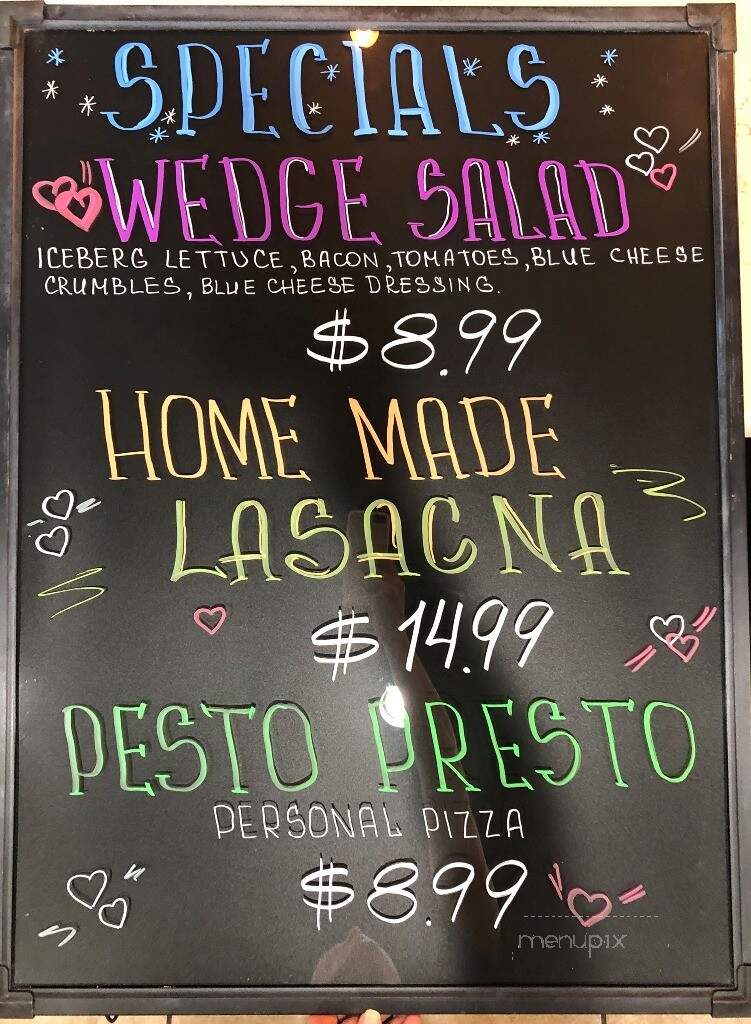 SPECIALS
WEDGE SALAD
ICEBERG LETTUCE, BACON, TOMATOES, BLUE CHEESE
CRUMBLES, BLUE CHEESE DRESSING.
$8.99
HOME MADE
LASAGNA
$14.99
PESTO PRESTO
PERSONAL PIZZA
$8.99
menupix